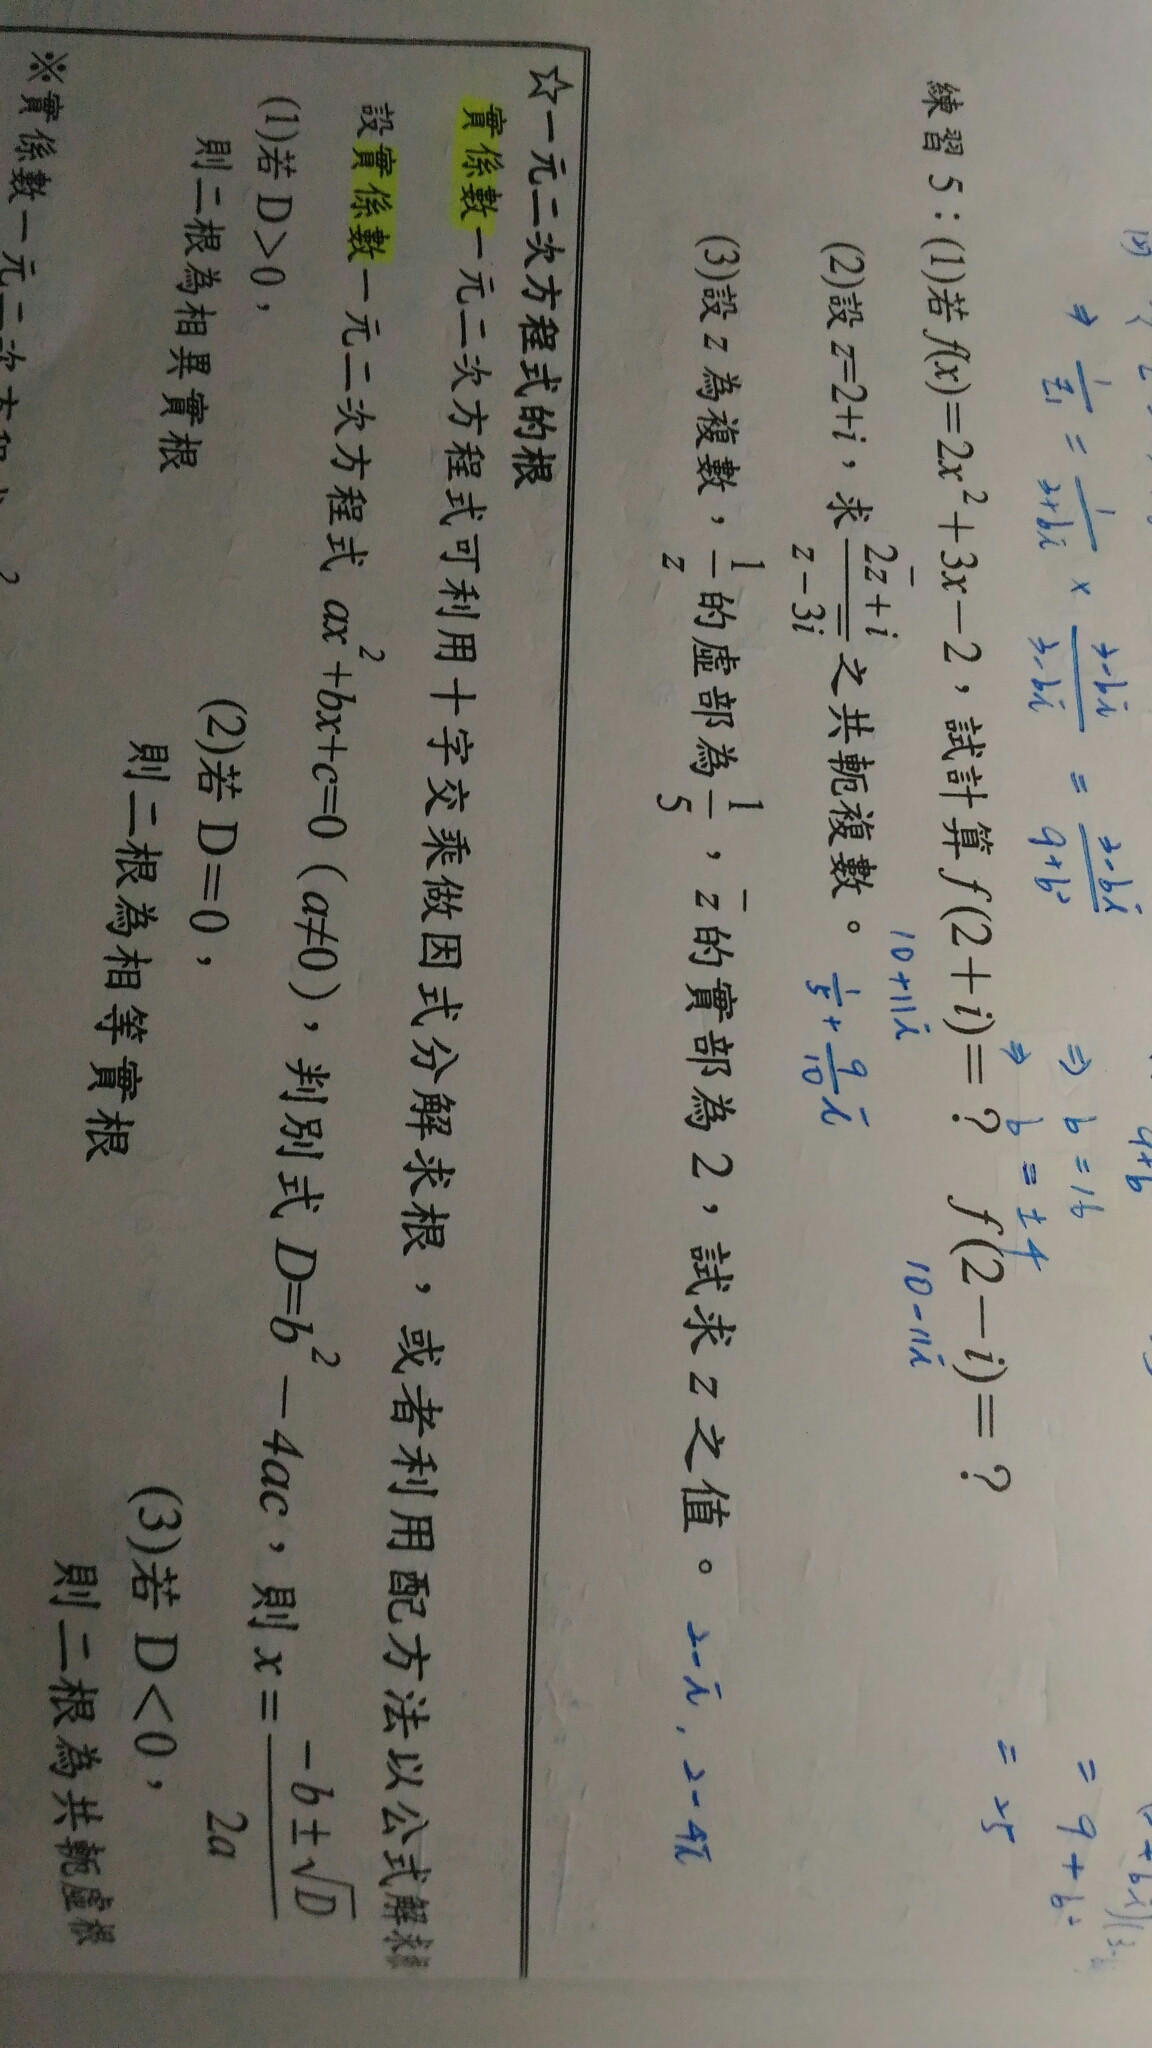 ⇒ 1/z₁ = 1/3+bi × 3-bi/3-bi = 3-bi/9+b²
⇒ b=16
⇒ b=±4
= 9+b²
= 25
練習5：(1)若 f(x)=2x²+3x−2，試計算 f(2+i)=？ f(2−i)=？
10+11i 10-11i
(2)設 z=2+i，求 2z̄+i / z−3i 之共軛複數。 1/5+9/10 i
(3)設 z 為複數，1/z 的虛部為 1/5，z̄ 的實部為 2，試求 z 之值。 2-i , 2-4i
☆一元二次方程式的根
實係數一元二次方程式可利用十字交乘做因式分解求根，或者利用配方法以公式解求
設實係數一元二次方程式 ax²+bx+c=0 (a≠0)，判別式 D=b²−4ac，則 x= −b±√D / 2a
(1)若 D>0， (2)若 D=0， (3)若 D<0，
則二根為相異實根 則二根為相等實根 則二根為共軛虛根
※實係數一元二次方程式